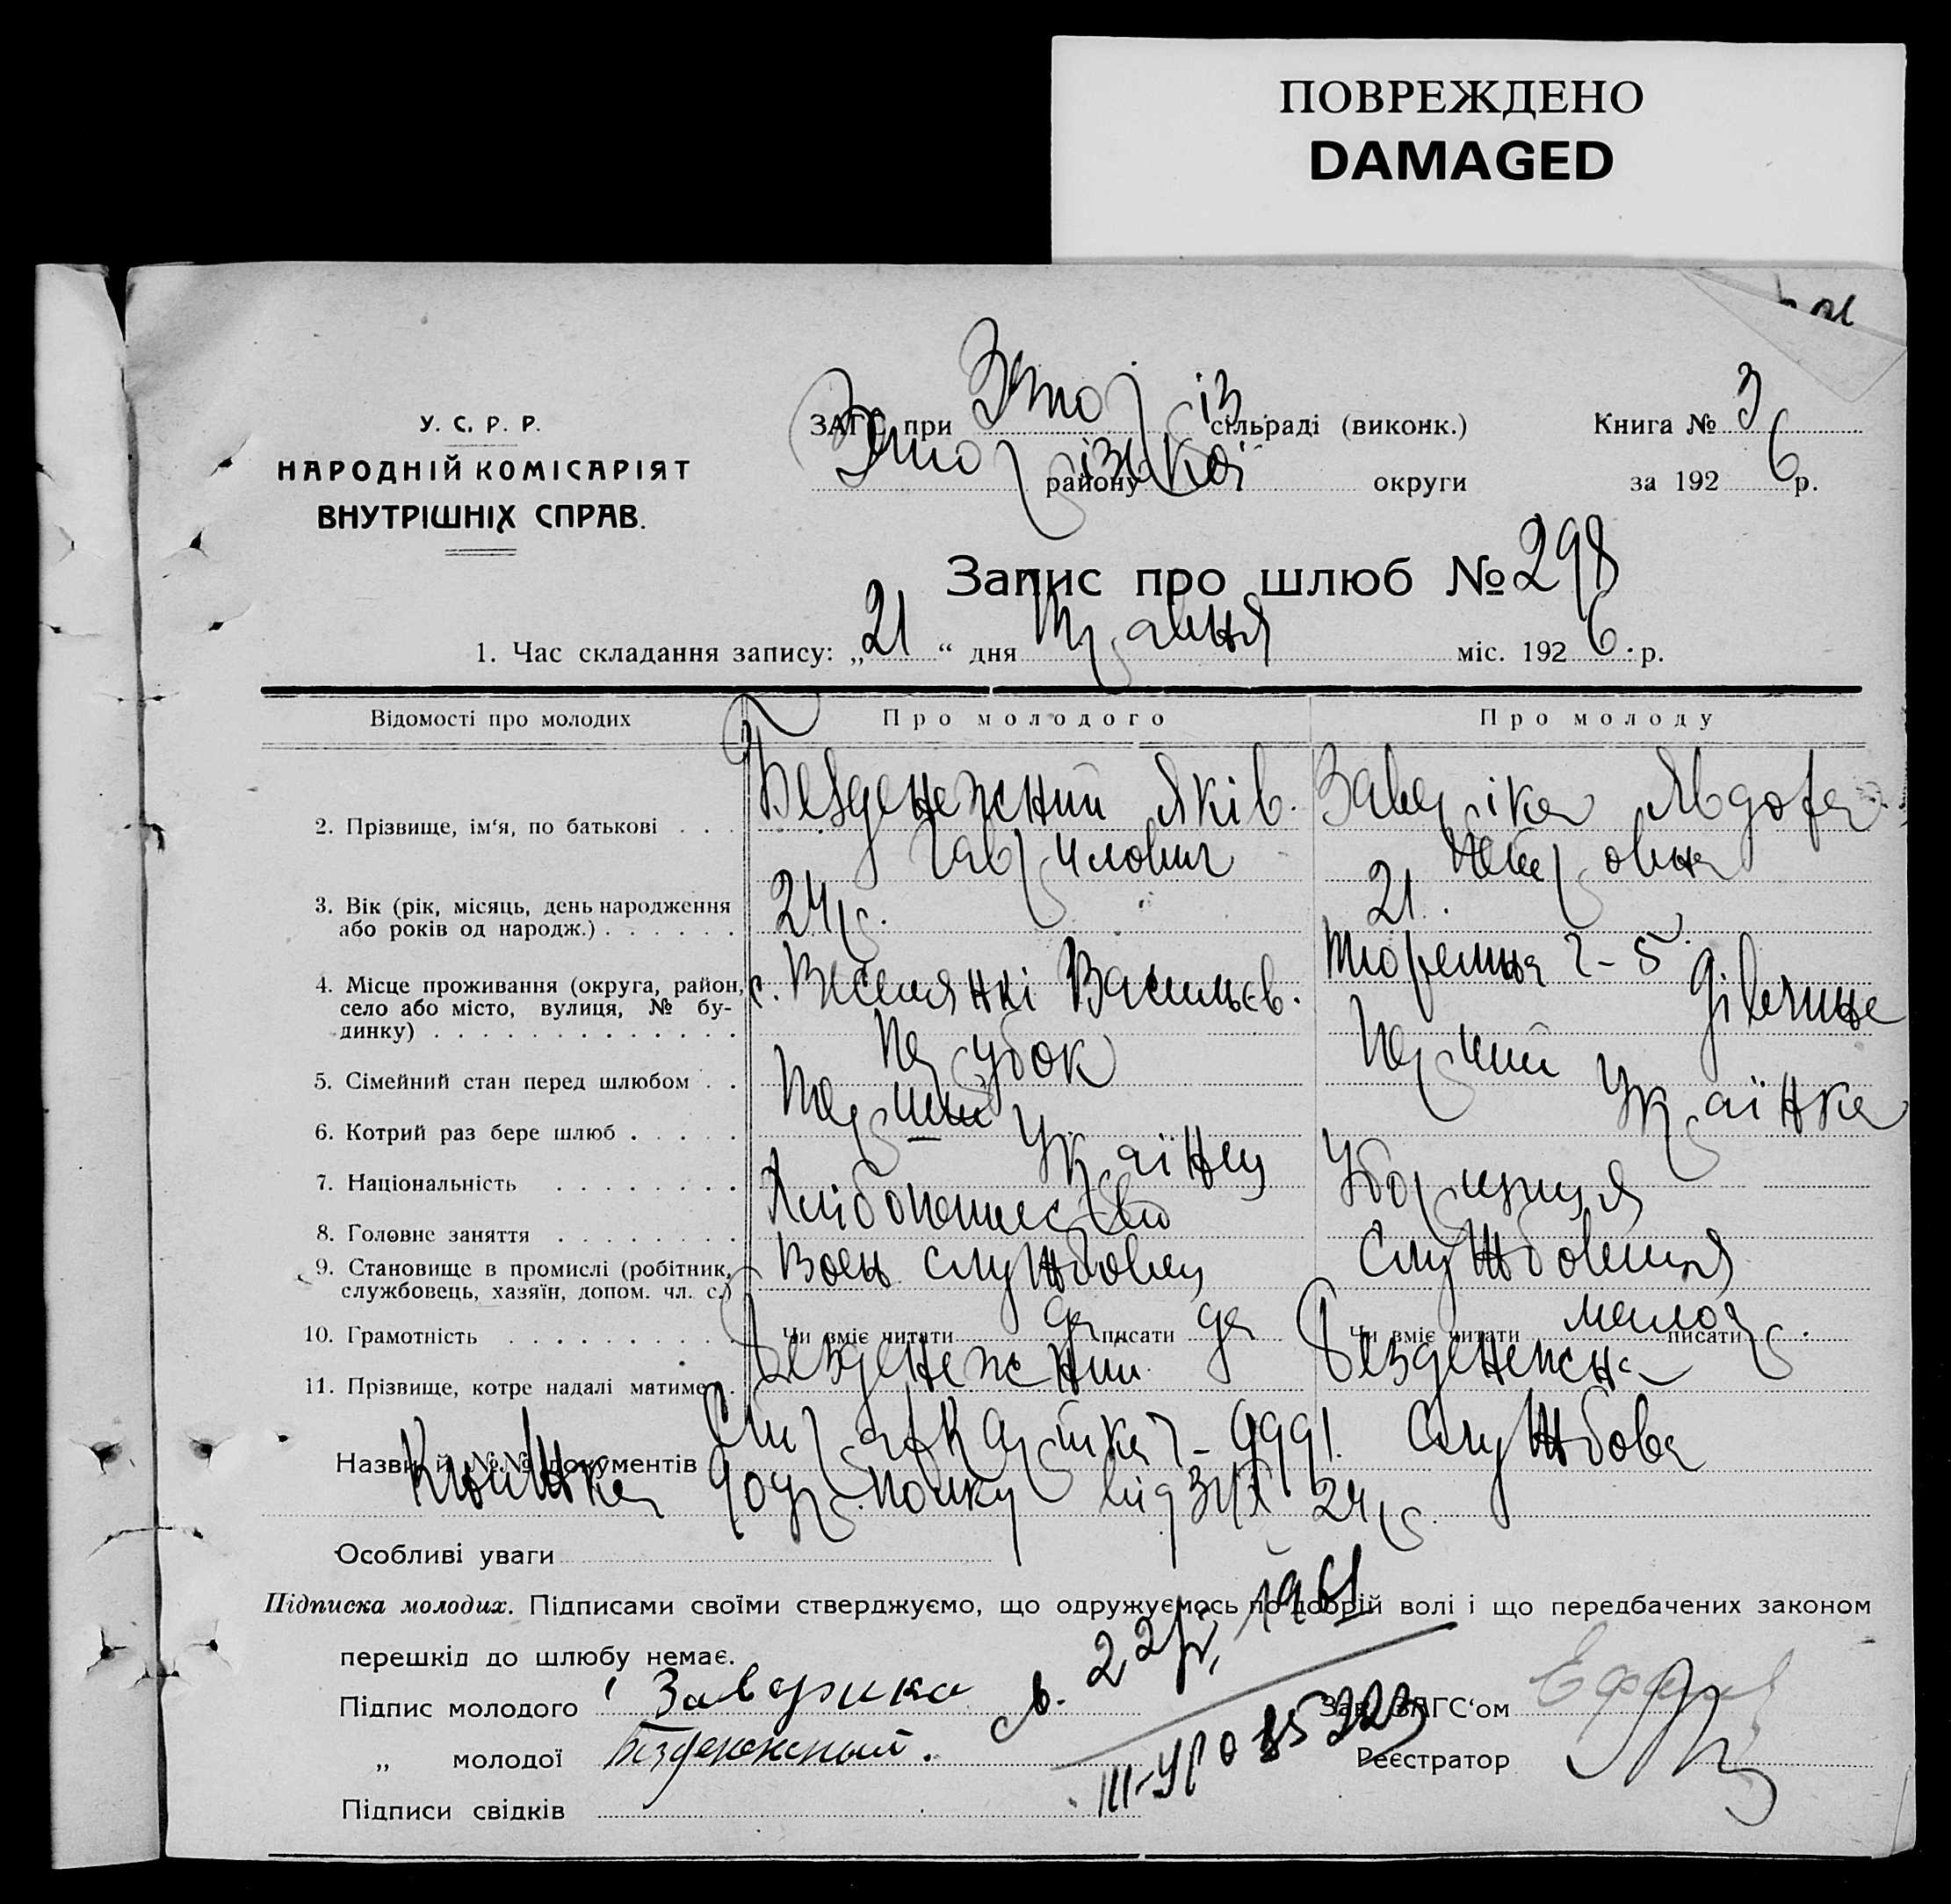 ПОВРЕЖДЕНО
DAMAGED
У. С. Р. Р.
НАРОДНІЙ КОМІСАРІЯТ
ВНУТРІШНІХ СПРАВ.
ЗАГС при сільраді (виконк.) Книга № 3
району округи за 192 6 р.
Запис про шлюб № 298
1. Час складання запису: „ 21 “ дня Травня міс. 192 6 р.
Відомості про молодих Про молодого Про молоду
2. Прізвище, ім'я, по батькові Безденежний Яків Заверіка Явдоха
Гаврилович Петровна
3. Вік (рік, місяць, день народження
або років од народж.) 24 р. 21.
4. Місце проживання (округа, район,
село або місто, вулиця, № бу-
динку) с. Веселянкі Васильєв. Тюремна 2-5
5. Сімейний стан перед шлюбом Парубок Дівчина
6. Котрий раз бере шлюб Перший Перший
7. Національність Українец Українка
8. Головне заняття Хлібопашество Уборщиця
9. Становище в промислі (робітник,
службовець, хазяїн, допом. чл. с.) Воен. службовец Службовиця
10. Грамотність Чи вміє читати да писати да Чи вміє читати писати
11. Прізвище, котре надалі матиме Безденежний Безденежн
Назви й №№ документів 9991. Службова
Книжка полку від 24 р.
Особливі уваги
Підписка молодих. Підписами своїми стверджуємо, що одружуємось по добрій волі і що передбачених законом
перешкід до шлюбу немає.
Підпис молодого Заверика
„ молодої Безденежный.
Підписи свідків
Зав. ЗАГС'ом
Реєстратор